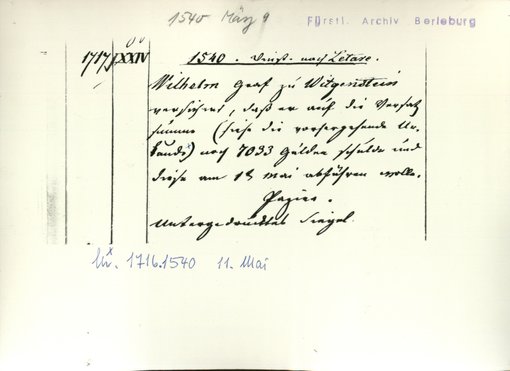 1540 März 9
Fürstl. Archiv Berleburg
1717 LXXIV
1540. Dinst. nach Letare.
Wilhelm Graf zu Witgenstein
versichert, daß er auf die Versatz
summe (siehe die vorhergehende Ur-
kunde) noch 7033 Gulden schulde und
diese am 1t Mai abführen wolle.
Papier.
Untergedrucktes Siegel.
1716.1540 11. Mai